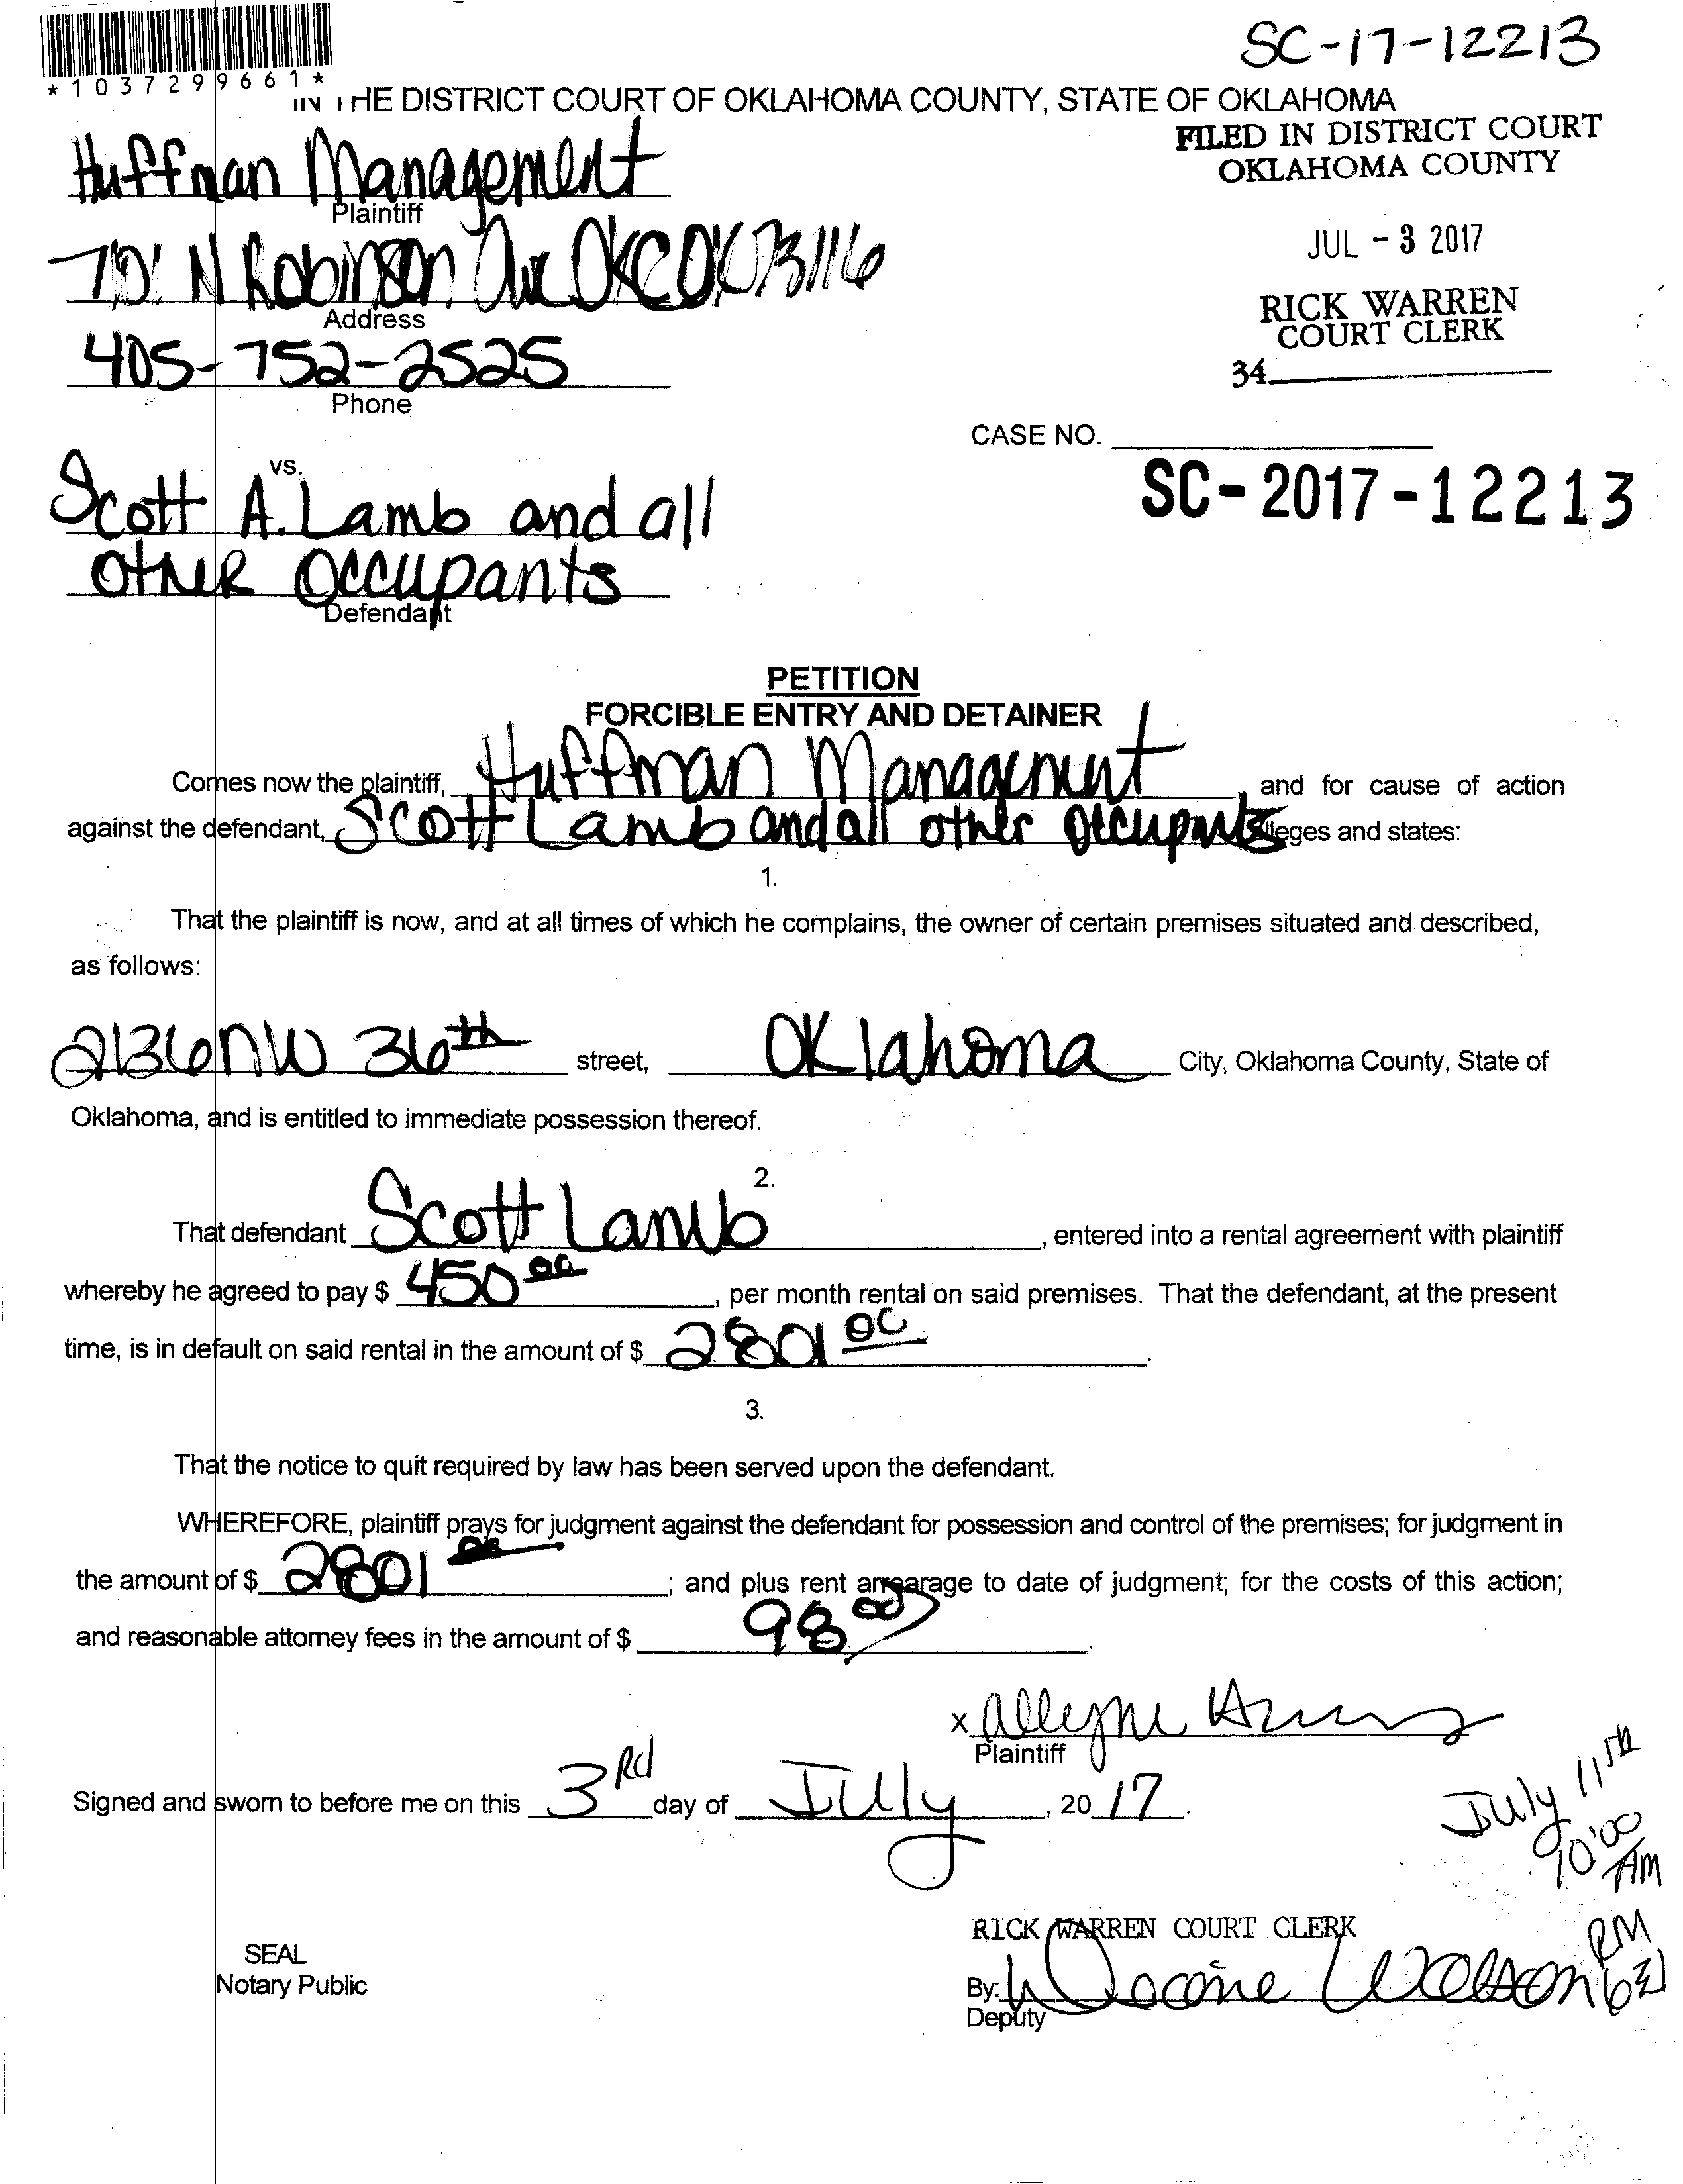 SC-17-12213
*1037299661*
IN THE DISTRICT COURT OF OKLAHOMA COUNTY, STATE OF OKLAHOMA
FILED IN DISTRICT COURT
OKLAHOMA COUNTY
Huffman Management
Plaintiff
JUL - 3 2017
N Robinson Ave OKC OK 73116
Address
RICK WARREN
COURT CLERK
405-752-2525
34
Phone
CASE NO.
SC-2017-12213
vs.
Scott A. Lamb and all
other Occupants
Defendant
PETITION
FORCIBLE ENTRY AND DETAINER
Comes now the plaintiff, Huffman Management, and for cause of action
against the defendant, Scott Lamb and all other occupants alleges and states:
1.
That the plaintiff is now, and at all times of which he complains, the owner of certain premises situated and described,
as follows:
2136 NW 36th street, Oklahoma City, Oklahoma County, State of
Oklahoma, and is entitled to immediate possession thereof.
2.
That defendant Scott Lamb, entered into a rental agreement with plaintiff
whereby he agreed to pay $ 450 00, per month rental on said premises. That the defendant, at the present
time, is in default on said rental in the amount of $ 2801 00.
3.
That the notice to quit required by law has been served upon the defendant.
WHEREFORE, plaintiff prays for judgment against the defendant for possession and control of the premises; for judgment in
the amount of $ 2801 00; and plus rent arrearage to date of judgment; for the costs of this action;
and reasonable attorney fees in the amount of $ 98 00.
x Alleyne
Plaintiff
Signed and sworn to before me on this 3Rd day of July, 2017.
July 11th
10:00
AM
RM
RICK WARREN COURT CLERK
SEAL
Notary Public
By:
Deputy